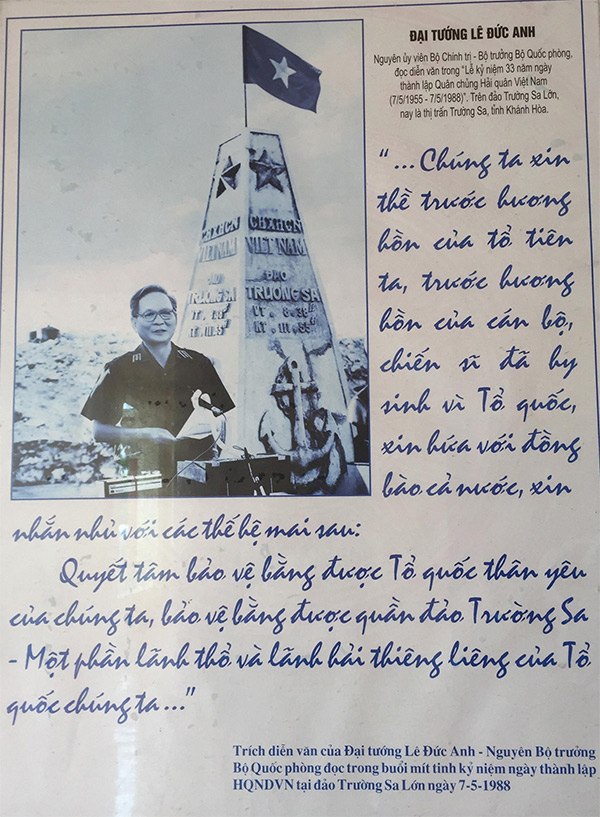 ĐẠI TƯỚNG LÊ ĐỨC ANH
Nguyên ủy viên Bộ Chính trị - Bộ trưởng Bộ Quốc phòng,
đọc diễn văn trong "Lễ kỷ niệm 33 năm ngày
thành lập Quân chủng Hải quân Việt Nam
(7/5/1955 - 7/5/1988)". Trên đảo Trường Sa Lớn,
nay là thị trấn Trường Sa, tỉnh Khánh Hòa.
CHXHCN
VIỆT NAM
ĐẢO
TRƯỜNG SA
CHXHCN
VIỆT NAM
ĐẢO
TRƯỜNG SA
"...Chúng ta xin
thề trước hương
hồn của tổ tiên
ta, trước hương
hồn của cán bộ,
chiến sĩ đã hy
sinh vì Tổ quốc,
xin hứa với đồng
bào cả nước, xin
nhắn nhủ với các thế hệ mai sau:
Quyết tâm bảo vệ bằng được Tổ quốc thân yêu
của chúng ta, bảo vệ bằng được quần đảo Trường Sa
- Một phần lãnh thổ và lãnh hải thiêng liêng của Tổ
quốc chúng ta..."
Trích diễn văn của Đại tướng Lê Đức Anh - Nguyên Bộ trưởng
Bộ Quốc phòng đọc trong buổi mít tinh kỷ niệm ngày thành lập
HQNDVN tại đảo Trường Sa Lớn ngày 7-5-1988